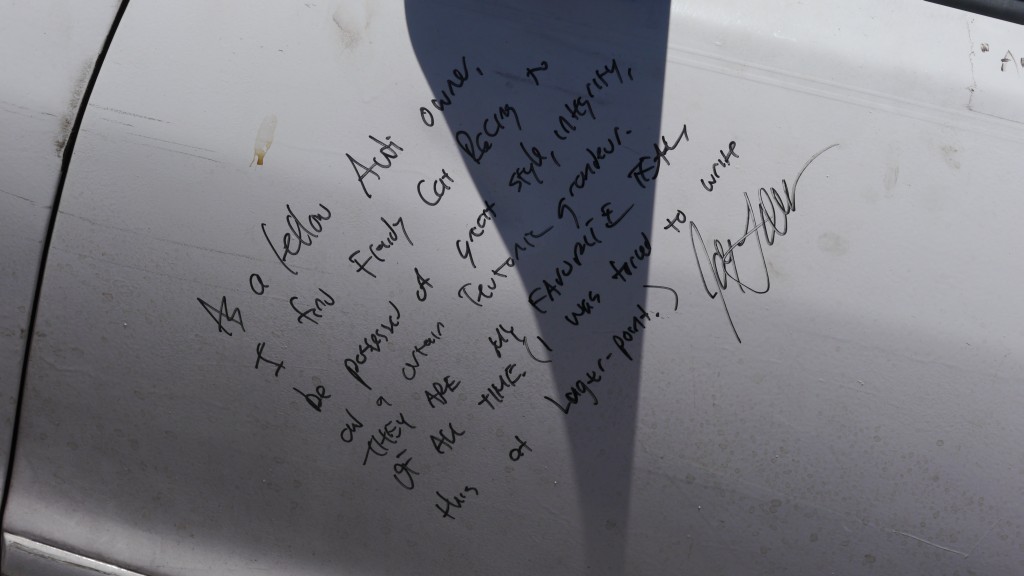 As a fellow Audi owner,
I find Friday Car Racing to
be possessed of great style, integrity,
and a certain Teutonic grandeur.
THEY ARE My FAVORITE TEAM
OF ALL TIME (I was forced to write
this at Logger-point.)